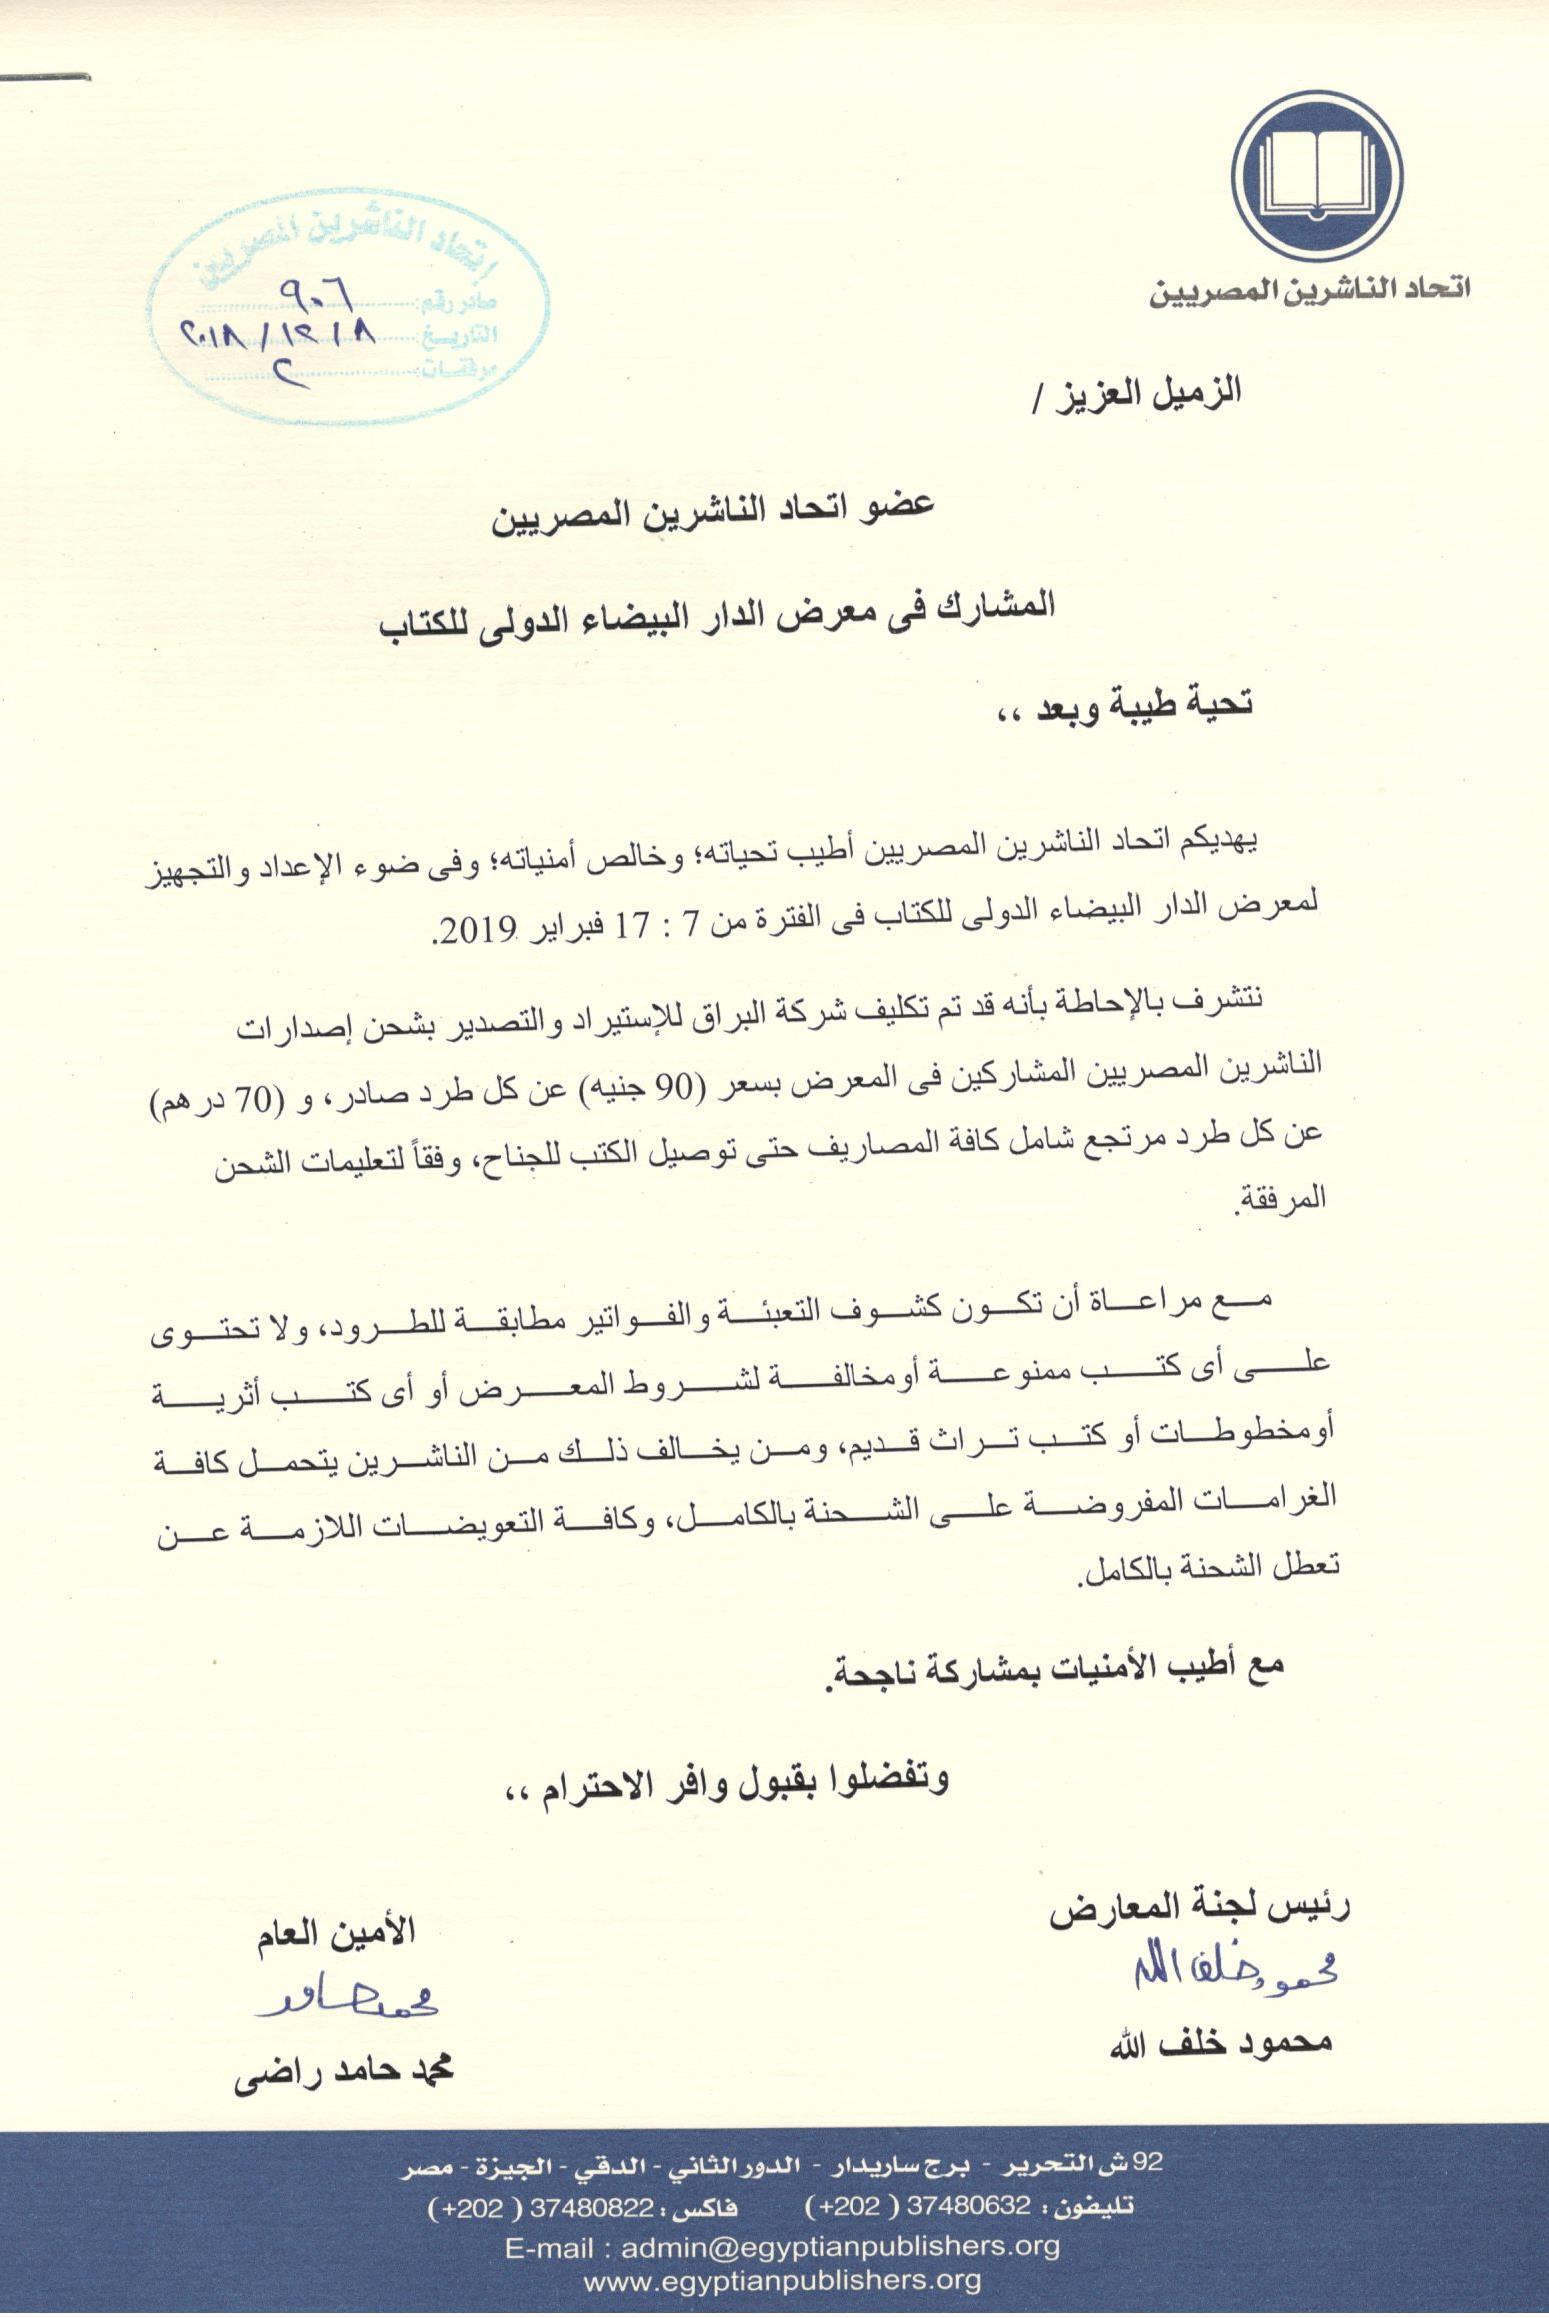 اتحاد الناشرين المصريين
اتحاد الناشرين المصريين
صادر رقم: ٩٠٦
التاريخ: ٨ / ١٢ / ٢٠١٨
مرفقات: ٢
الزميل العزيز /
عضو اتحاد الناشرين المصريين
المشارك فى معرض الدار البيضاء الدولى للكتاب
تحية طيبة وبعد ،،
يهديكم اتحاد الناشرين المصريين أطيب تحياته؛ وخالص أمنياته؛ وفى ضوء الإعداد والتجهيز
لمعرض الدار البيضاء الدولى للكتاب فى الفترة من 7 : 17 فبراير 2019.
نتشرف بالإحاطة بأنه قد تم تكليف شركة البراق للإستيراد والتصدير بشحن إصدارات
الناشرين المصريين المشاركين فى المعرض بسعر (90 جنيه) عن كل طرد صادر، و (70 درهم)
عن كل طرد مرتجع شامل كافة المصاريف حتى توصيل الكتب للجناح، وفقاً لتعليمات الشحن
المرفقة.
مع مراعاة أن تكون كشوف التعبئة والفواتير مطابقة للطرود، ولا تحتوى
على أى كتب ممنوعة أومخالفة لشروط المعرض أو أى كتب أثرية
أومخطوطات أو كتب تراث قديم، ومن يخالف ذلك من الناشرين يتحمل كافة
الغرامات المفروضة على الشحنة بالكامل، وكافة التعويضات اللازمة عن
تعطل الشحنة بالكامل.
مع أطيب الأمنيات بمشاركة ناجحة.
وتفضلوا بقبول وافر الاحترام ،،
رئيس لجنة المعارض
محمود خلف الله
محمود خلف الله
الأمين العام
محمد حامد
محمد حامد راضى
92 ش التحرير - برج ساريدار - الدور الثاني - الدقي - الجيزة - مصر
تليفون : 37480632 ( 202+) فاكس : 37480822 ( 202+)
E-mail : admin@egyptianpublishers.org
www.egyptianpublishers.org